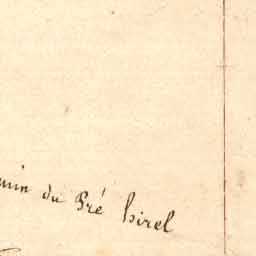 min du Pré hirel